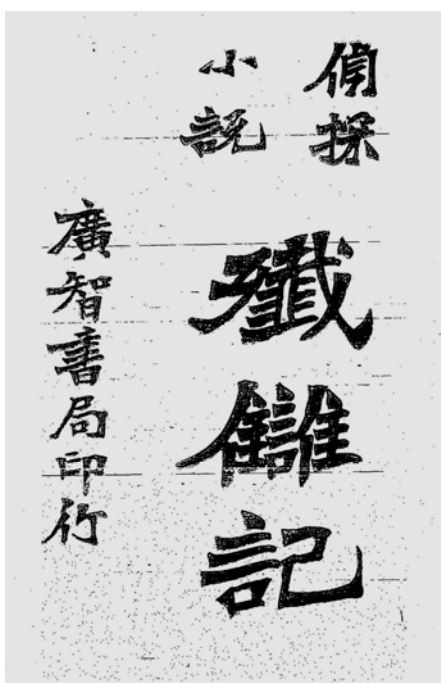 偵探
小說
殲讎記
廣智書局印行